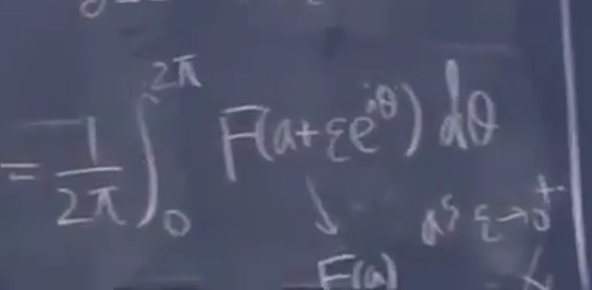 = 1/2π ∫₀^{2π} F(a+εe^{iθ}) dθ
↓ as ε→0⁺
F(a)